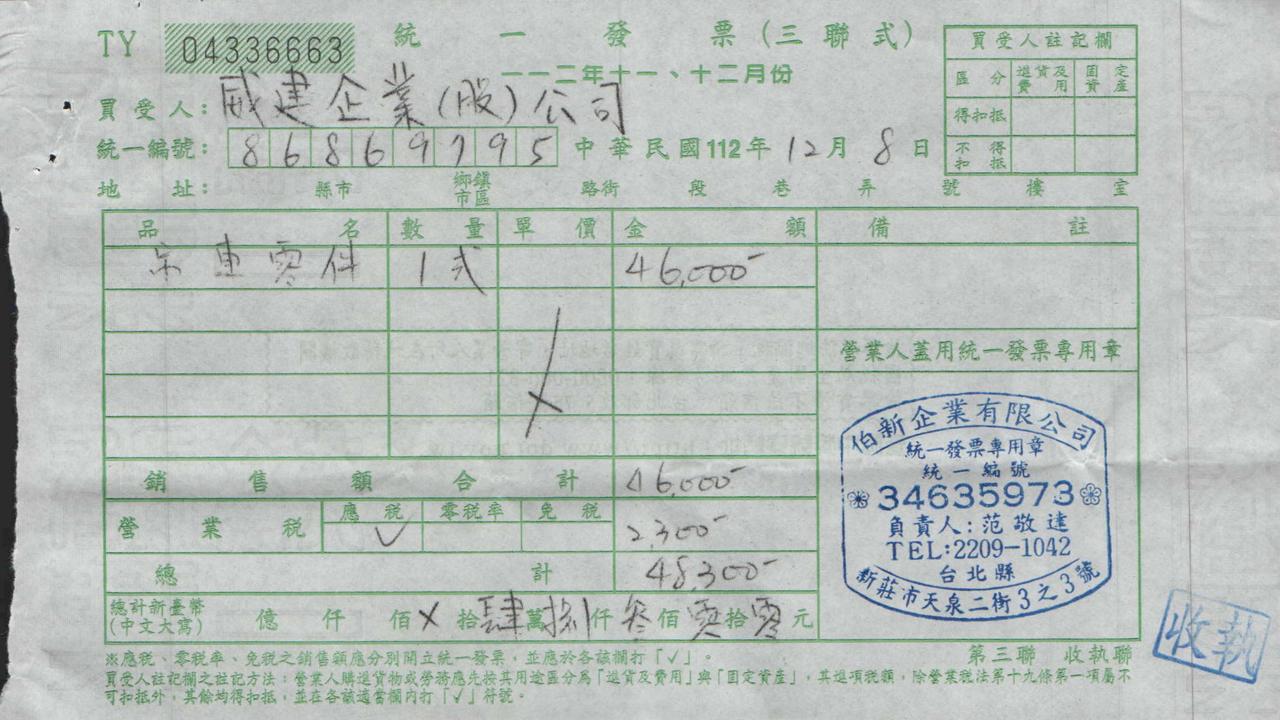 TY 04336663 統一發票(三聯式)
一一二年十一、十二月份
買受人: 威建企業(股)公司
統一編號: 86869795 中華民國112年12月8日
地址: 縣市 鄉鎮市區 路街 段 巷 弄 號 樓 室
買受人註記欄
區分 進貨及費用 固定資產
得扣抵
不得扣抵
品名 數量 單價 金額 備註
吊車零件 1式 46,000-
營業人蓋用統一發票專用章
銷售額合計 46,000-
營業稅 應稅 零稅率 免稅 2,300-
✓
總計 48,300-
總計新臺幣(中文大寫) 億 仟 佰 X 拾肆萬捌仟叁佰零拾零元
伯新企業有限公司
統一發票專用章
統一編號
34635973
負責人:范敬達
TEL:2209-1042
台北縣
新莊市天泉二街3之3號
※應稅、零稅率、免稅之銷售額應分別開立統一發票,並應於各該欄打「✓」。
第三聯 收執聯
買受人註記欄之註記方法:營業人購進貨物或勞務應先按其用途區分為「進貨及費用」與「固定資產」,其進項稅額,除營業稅法第十九條第一項屬不
可扣抵外,其餘均得扣抵,並在各該適當欄內打「✓」符號。
收執